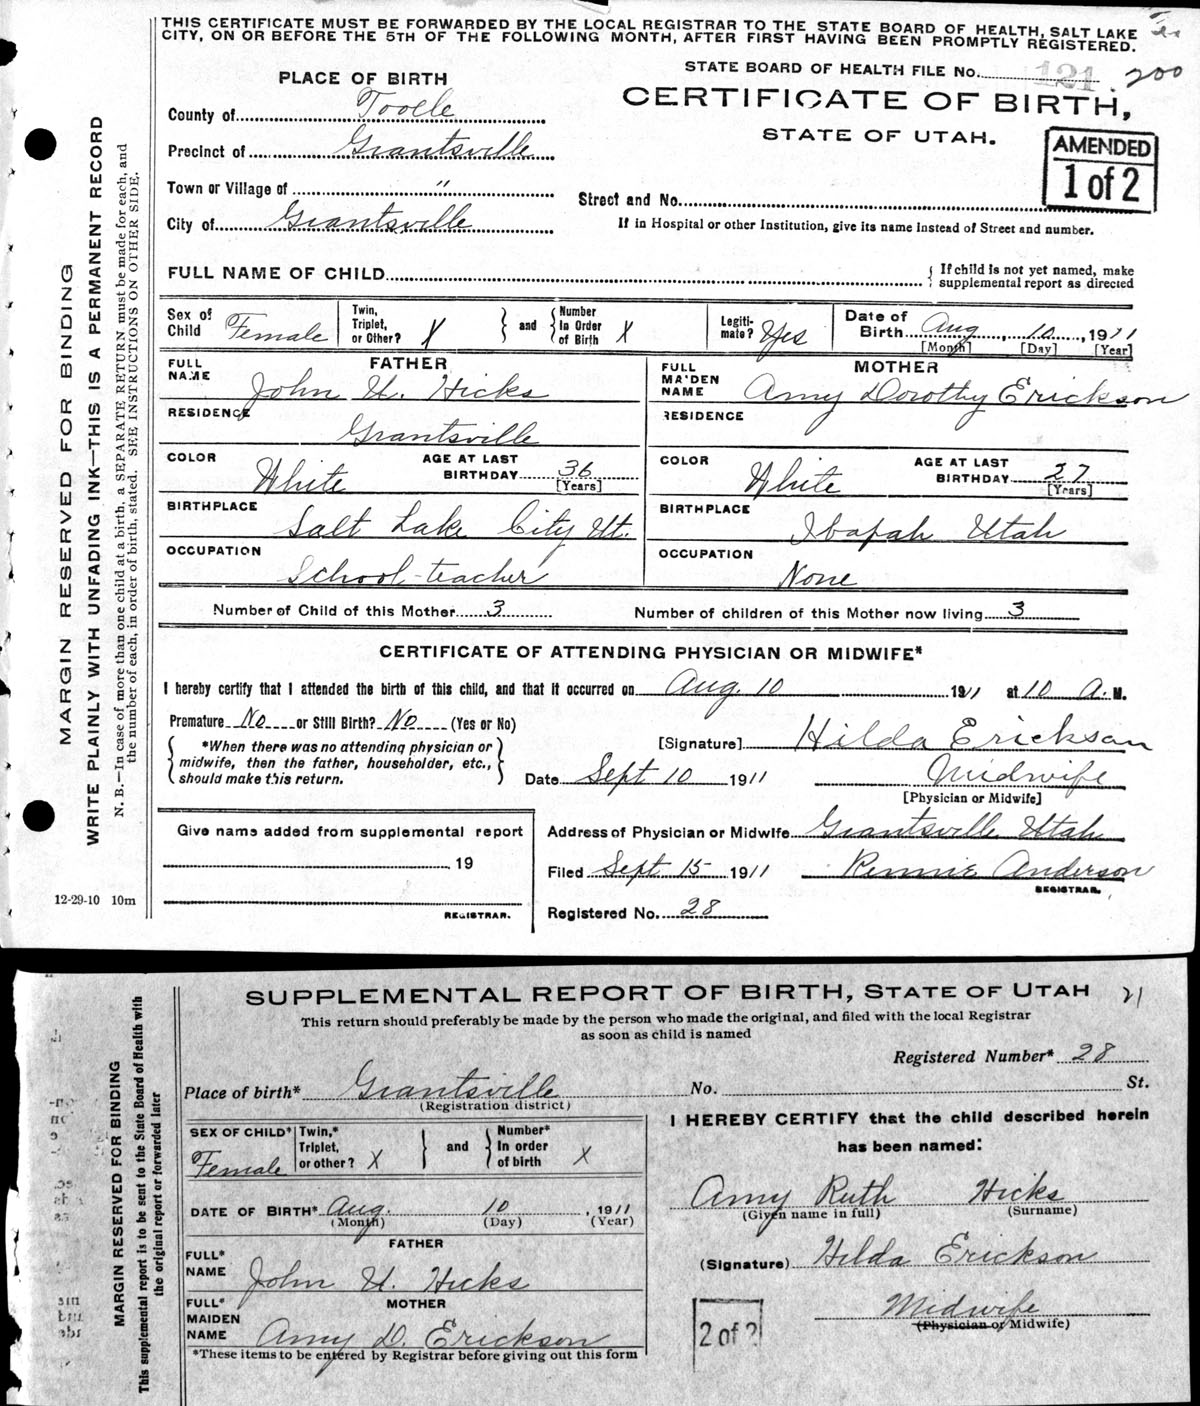 THIS CERTIFICATE MUST BE FORWARDED BY THE LOCAL REGISTRAR TO THE STATE BOARD OF HEALTH, SALT LAKE
CITY, ON OR BEFORE THE 5TH OF THE FOLLOWING MONTH, AFTER FIRST HAVING BEEN PROMPTLY REGISTERED.
PLACE OF BIRTH
STATE BOARD OF HEALTH FILE No. 121 . 200
County of Tooele
CERTIFICATE OF BIRTH,
STATE OF UTAH.
AMENDED
1 of 2
Precinct of Grantsville
Town or Village of "
Street and No.
City of Grantsville
If in Hospital or other Institution, give its name Instead of Street and number.
FULL NAME OF CHILD
If child is not yet named, make
supplemental report as directed
Sex of Child Female
Twin, Triplet, or Other? X
and
Number In Order of Birth X
Legiti-mate? Yes
Date of Birth Aug, 10, 1911
[Month] [Day] [Year]
FATHER
FULL NAME John U. Hicks
RESIDENCE
Grantsville
COLOR White
AGE AT LAST BIRTHDAY 36
[Years]
BIRTHPLACE
Salt Lake City Ut.
OCCUPATION
School-teacher
MOTHER
FULL MAIDEN NAME Amy Dorothy Erickson
RESIDENCE
COLOR White
AGE AT LAST BIRTHDAY 27
[Years]
BIRTHPLACE
Ibapah Utah
OCCUPATION
None
Number of Child of this Mother 3
Number of children of this Mother now living 3
CERTIFICATE OF ATTENDING PHYSICIAN OR MIDWIFE*
I hereby certify that I attended the birth of this child, and that it occurred on Aug. 10 1911 at 10 A. M.
Premature No or Still Birth? No (Yes or No)
*When there was no attending physician or
midwife, then the father, householder, etc.,
should make this return.
[Signature] Hilda Erickson
Date Sept 10 1911
Midwife
[Physician or Midwife]
Give name added from supplemental report
19
REGISTRAR.
Address of Physician or Midwife Grantsville Utah
Filed Sept 15 1911 Rennie Anderson
REGISTRAR.
Registered No. 28
12-29-10 10m
MARGIN RESERVED FOR BINDING
WRITE PLAINLY WITH UNFADING INK—THIS IS A PERMANENT RECORD
N. B.—In case of more than one child at a birth, a SEPARATE RETURN must be made for each, and
the number of each, in order of birth, stated. SEE INSTRUCTIONS ON OTHER SIDE.
SUPPLEMENTAL REPORT OF BIRTH, STATE OF UTAH 21
This return should preferably be made by the person who made the original, and filed with the local Registrar
as soon as child is named
Registered Number* 28
Place of birth* Grantsville No. St.
(Registration district)
SEX OF CHILD* Female
Twin,* Triplet, or other? X
and
Number* In order of birth X
DATE OF BIRTH* Aug. 10, 1911
(Month) (Day) (Year)
FATHER
FULL* NAME John U. Hicks
MOTHER
FULL* MAIDEN NAME Amy D. Erickson
*These items to be entered by Registrar before giving out this form
I HEREBY CERTIFY that the child described herein
has been named:
Amy Ruth Hicks
(Given name in full) (Surname)
(Signature) Hilda Erickson
Midwife
(Physician or Midwife)
2 of 2
MARGIN RESERVED FOR BINDING
This supplemental report is to be sent to the State Board of Health with
the original report or forwarded later